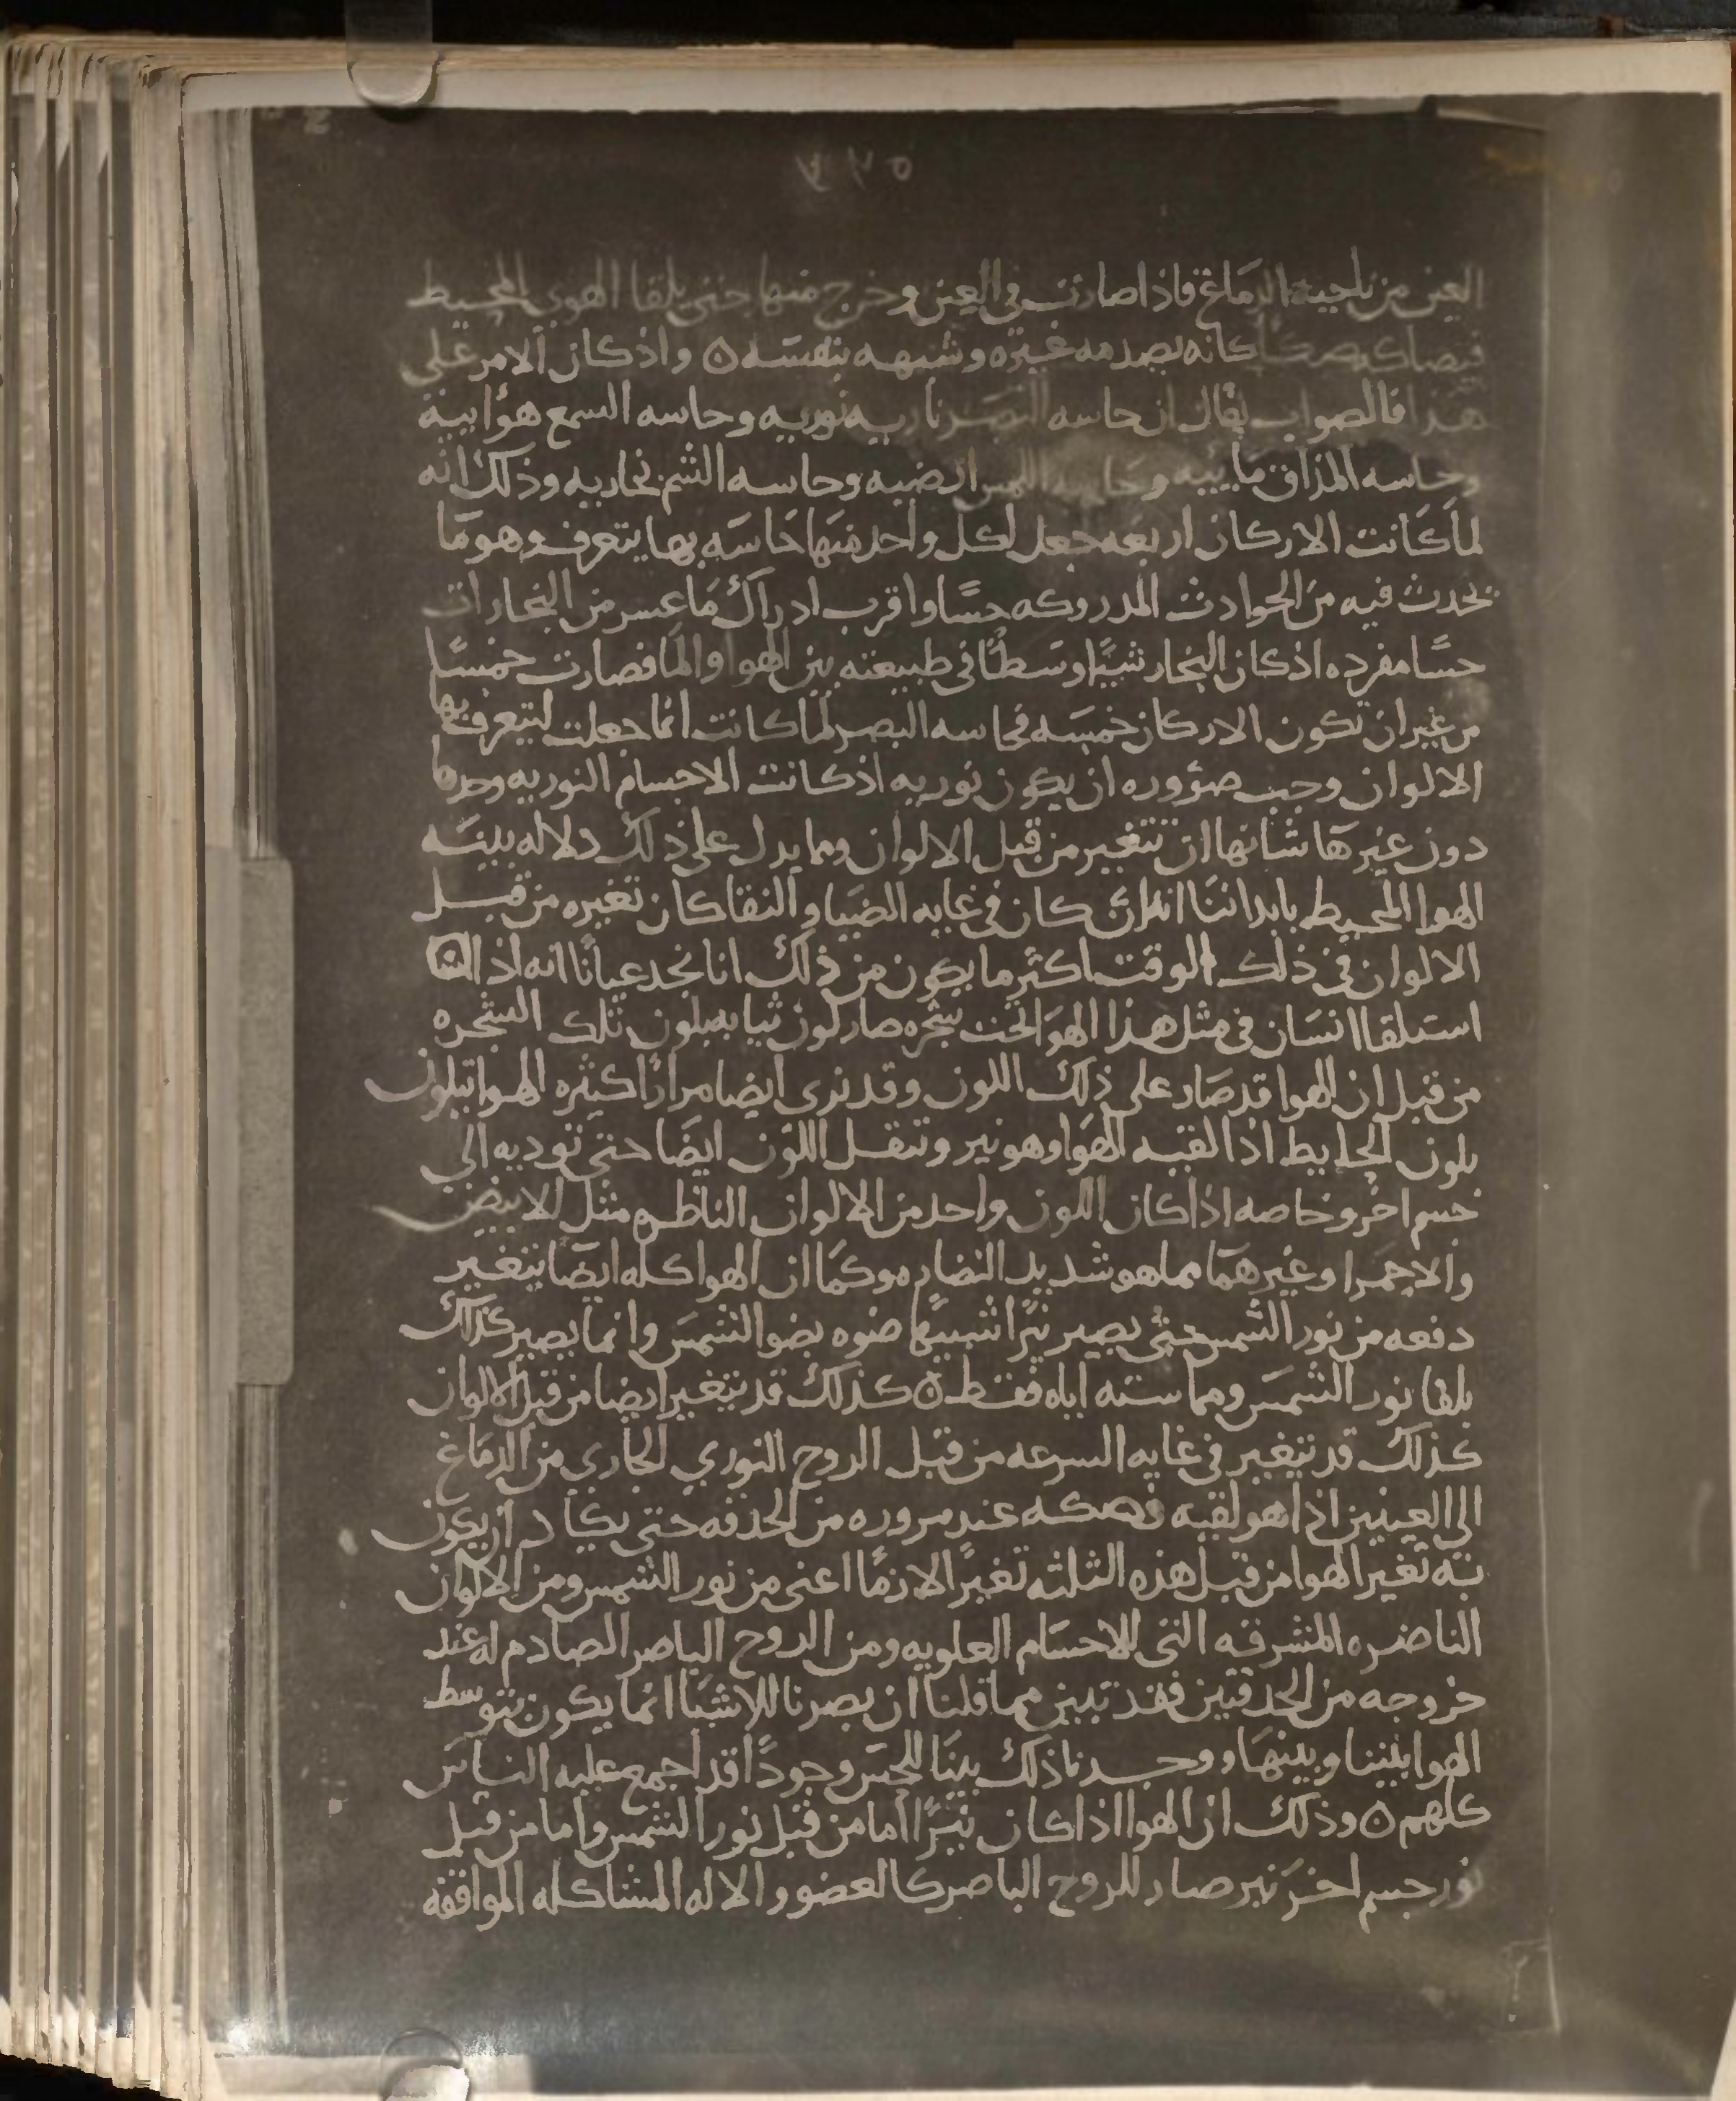 العين من ناحية الدماغ فاذا صارت في العين وخرج منها حتى يلقا الهوى المحيط
فيصاكه صكا كانه يصدمه غيره وشبهه بنفسه ن واذ كان الامر على
هذا فالصواب يقال ان حاسه البصر ناريه نوريه وحاسه السمع هوٰاىية
وحاسه المذاق مايىه وحاسه اللمس ارضيه وحاسه الشم بخاريه وذلك انه
لما كانت الاركان اربعه جعل لكل واحد منها حاسه بها يتعرف وهو ما
يحدث فيه من الحوادث المدروكه حسا واقرب ادراك ما عسر من البخارات
حسا مفرده اذ كان البخار شيا وسطا في طبيعته بين الهوا والما فصارت خمسا
من غير ان تكون الاركان خمسه فحاسه البصر لما كانت انما جعلت لتتعرف بها
الالوان وجب ضروره ان يكون نوريه اذ كانت الاجسام النوريه وحدها
دون غيرها شانها ان تتغير من قبل الالوان ومما يدل على ذلك دلاله بينه
الهوا المحيط بابداننا كان في غايه الضيا والنقا كان تغيره من قبل
الالوان في ذلك الوقت اكثر ما يكون من ذلك انا نجد عيانا انه اذا
استلقا انسان في مثل هذا الهوا تحت شجره صار لون ثيابه بلون تلك الشجره
من قبل ان الهوا قد صار على ذلك اللون وقد نرى ايضا مرارا كثيره الهوا تبلون
بلون الحايط اذا لقيه الهوا وهو نير وتنقل اللون ايضا حتى توديه الى
جسم اخر وخاصه اذا كان اللون واحد من الالوان الناظره مثل الابيض
والاحمر وغيرهما مما هو شديد النضاره وكما ان الهوا كله ايضا يتغير
دفعه من نور الشمس حتى يصير نيرا شبيها ضوه بضوا الشمس وانما يصير كذلك
بلقا نور الشمس ومماسته اياه فقط ن كذلك قد يتغير ايضا من قبل الالوان
كذلك قد يتغير في غايه السرعه من قبل الروح النوري الجاري من الدماغ
الى العينين اذا هو لقيه وصكه عند مروره من الحدقه حتى يكاد ان يكون
به تغير الهوا من قبل هذه الثلثه تغيرا لازما اعني من نور الشمس ومن الالوان
الناضره المشرقه التي للاجسام العلويه ومن الروح الباصر الصادم له عند
خروجه من الحدقتين فقد تبين مما قلنا ان بصرنا للاشيا انما يكون بتوسط
الهوا بيننا وبينها ووجدنا ذلك بينا للحس وجودا قد اجمع عليه الناس
كلهم ن وذلك ان الهوا اذا كان نيرا اما من قبل نور الشمس واما من قبل
نور جسم اخر نير صار للروح الباصر كالعضو والاله المشاكله الموافقه